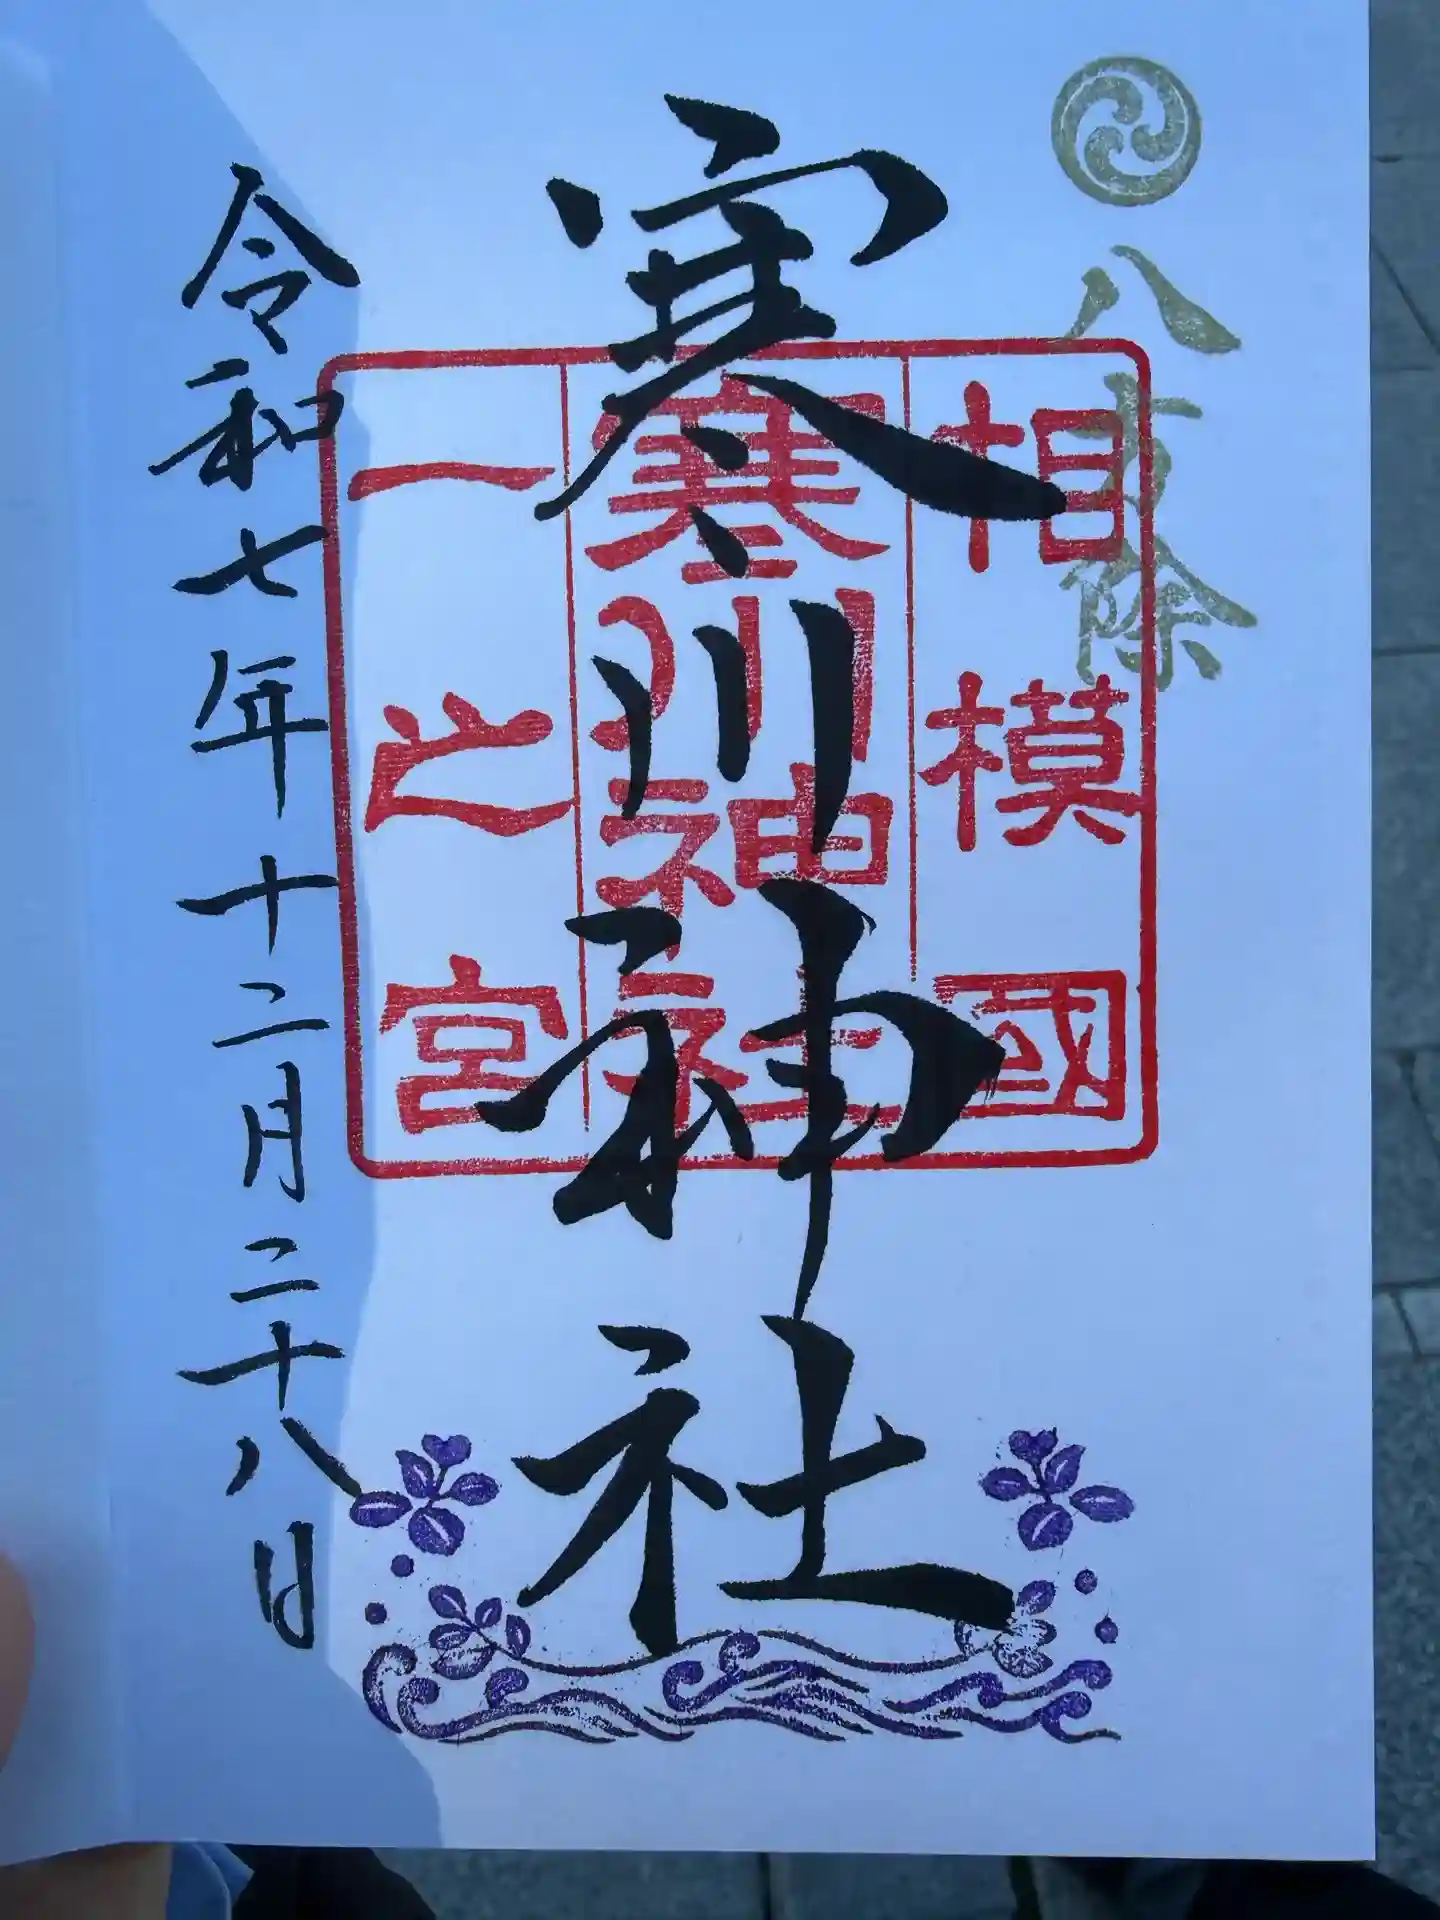 八方除
相模國
寒川神社
一之宮
寒川神社
令和七年十二月二十八日